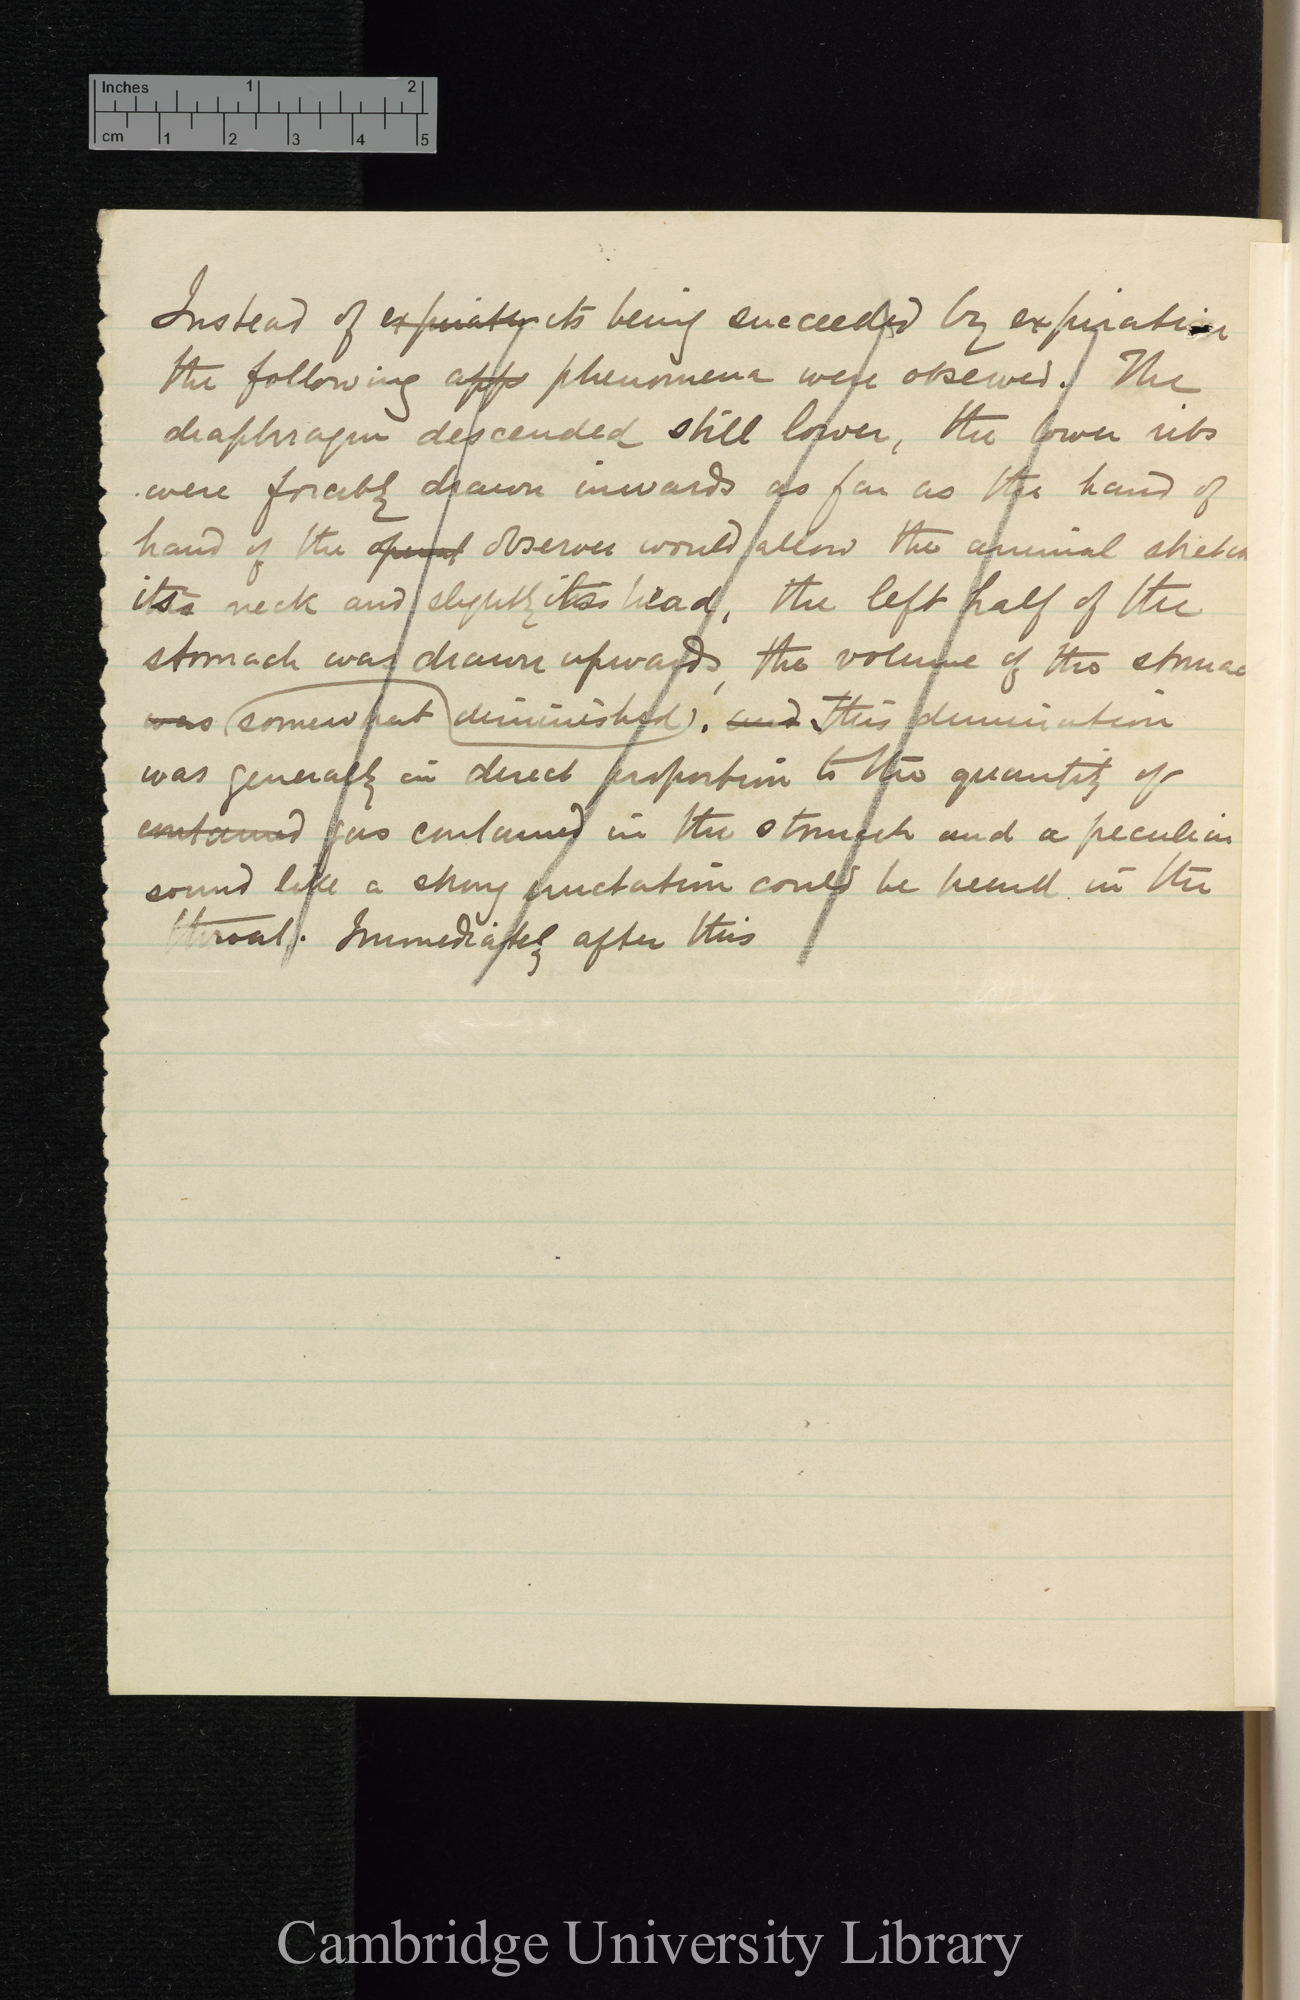 Inches 1 2
cm 1 2 3 4 5
Instead of expiration its being succeeded by expiration
the following app phenomena were observed. The
diaphragm descended still lower, the lower ribs
were forcibly drawn inwards as far as the hand of
hand of the observer would allow the animal stretch
its neck and slightly its head, the left half of the
stomach was drawn upwards, the volume of the stomac
was (somewhat diminished). and This diminution
was generally in direct proportion to the quantity of
contained gas contained in the stomach and a peculiar
sound like a strong eructation could be heard in the
throat. Immediately after this
Cambridge University Library